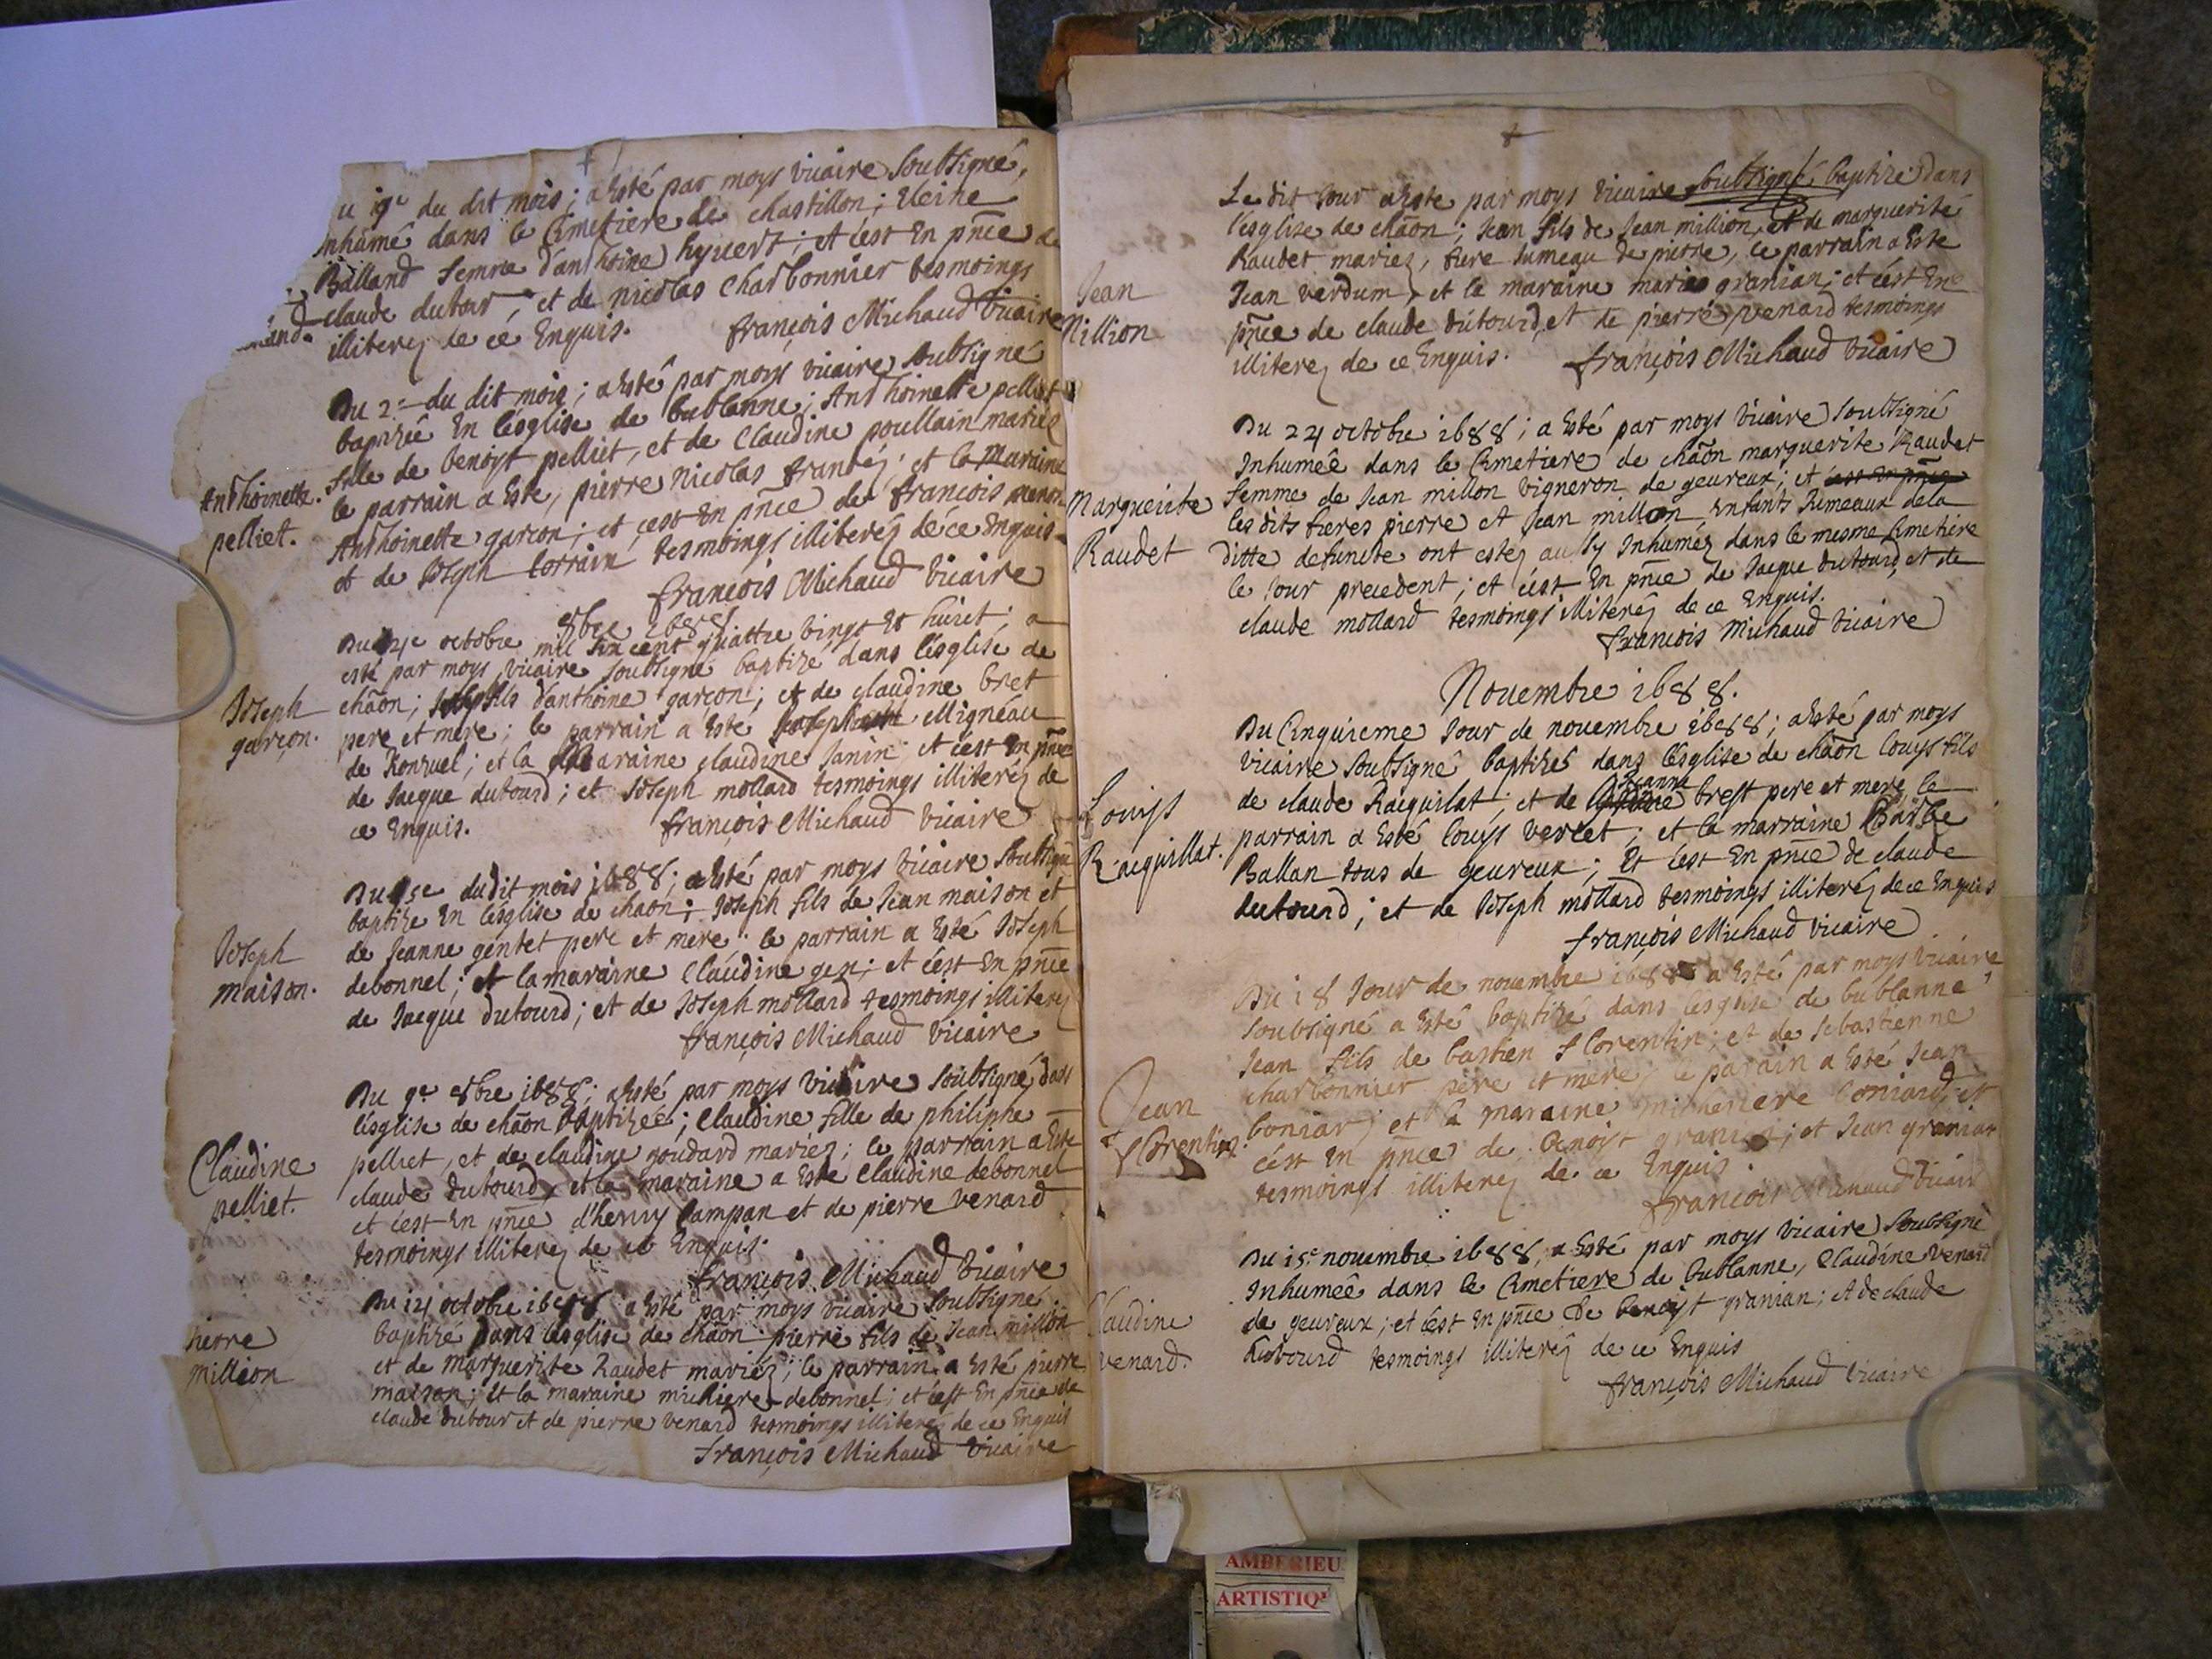 du dit mois; a esté par moys vicaire soubsigné,
Inhumé dans le Cimetiere de chastillon; Eleine
Balland femme d'anthoine hyvert; et c'est En pñce de
claude dutour, et de nicolas Charbonnier tesmoings
illiterez de ce Enquis. françois Michaud vicaire
Du 2e du dit mois; a esté par moys vicaire soubsigné
baptizée En l'esglise de bublanne; Anthoinette pelliet
fille de benoyt pelliet, et de Claudine poullain mariez
le parrain a esté, pierre nicolas ; et la Maraine
Anthoinette garçon; et c'est En pñce de françois
et de Joseph Lorrain tesmoings illiterez de ce Enquis
françois Michaud vicaire
Anthoinette.
pelliet.
8bre 1688
octobre mil six cent quattre vings et huict; a
esté par moys vicaire soubsigné baptizé dans l'esglise de
chãon; fils d'anthoine garçon; et de claudine bret
pere et mere; le parrain a esté Joseph Mignéau
de Ronzuel; et la Maraine claudine Janin et c'est En pñce
de Jacque dutourd; et Joseph mollard tesmoings illiterez de
ce Enquis. françois Michaud vicaire
Joseph
garçon.
dudit mois 1688; a esté par moys vicaire soubsigné
baptize En l'esglise de chãon; Joseph fils de Jean maison et
de Jeanne gentet pere et mere; le parrain a esté Joseph
debonnel; et la maraine Claudine gen; et c'est En pñce
de Jacque dutourd; et de Joseph mollard tesmoings illiterez
françois Michaud vicaire
Joseph
maison.
Du 9e 8bre 1688; a esté par moys vicaire soubsigné, dans
l'esglise de chãon baptizée; Claudine fille de philiphe
pelliet, et de claudine goudard mariez; le parrain a esté
claude dutourd, et la maraine a esté Claudine debonnel
et c'est En pñce d'henry Campan et de pierre venard
tesmoings illiterez de ce Enquis.
françois Michaud vicaire
Claudine
pelliet.
Du 14 octobre 1688 a esté par moys vicaire soubsigné
baptizé dans l'esglise de chãon pierre fils de Jean million
et de marguerite Raudet mariez; le parrain a esté pierre
maison; et la maraine michiere debonnel; et c'est En pñce de
claude dutour et de pierre venard tesmoings illiterez de ce Enquis
françois Michaud vicaire
pierre
million
Le dit Jour a este par moys vicaire soubsigné baptize dans
l'esglise de chãon; Jean fils de Jean million, et de marguerite
Raudet mariez, frere Jumeau de pierre, le parrain a este
Jean verdum, et la maraine marie granian; et c'est En
pñce de claude dutourd, et de pierre venard tesmoings
illiterez de ce Enquis. françois Michaud vicaire
Jean
Million
Du 24 octobre 1688; a esté par moys vicaire soubsigné
Inhumée dans le Cimetiere de chãon marguerite Raudet
femme de Jean millon vigneron de gevreux; et c'est en pñce
les dits freres pierre et Jean million Enfants Jumeaux de la
ditte defuncte ont estez aussy Inhuméz dans le mesme Cimetiere
le Jour precedent; et c'est En pñce de Jacque dutourd, et de
claude mollard tesmoings illiterez de ce Enquis.
françois Michaud vicaire
Marguerite
Raudet
Novembre 1688.
Du Cinquieme Jour de novembre 1688; a esté par moys
vicaire soubsigné baptizé dans l'esglise de chãon Louys fils
de claude Raiquilat; et de Jeanne brest pere et mere, le
parrain a Esté louys verlet; et la marraine Barbe
Ballan tous de gevreux; Et c'est En pñce de claude
dutourd; et de Joseph mollard tesmoings illiterez de ce Enquis
françois Michaud vicaire
Louys
Raiquillat.
Du 18 Jour de novembre 1688 a esté par moys vicaire
soubsigné a esté baptizé dans l'esglise de bublanne
Jean fils de bastien florentin; et de sebastienne
charbonnier père et mere; le parain a esté Jean
boniard et la maraine boniard; et
c'est En pñce de benoist granian; et Jean granian
tesmoings illiterez de ce Enquis.
françois Michaud vicaire
Jean
florentin
Du 15e novembre 1688, a esté par moys vicaire soubsigné
Inhumée dans le Cimetiere de bublanne, Claudine venard
de gevreux; et c'est En pñce de benoyt granian; et de claude
dutourd tesmoings illiterez de ce Enquis
françois Michaud vicaire
Claudine
venard.
AMBERIEU
ARTISTIQ